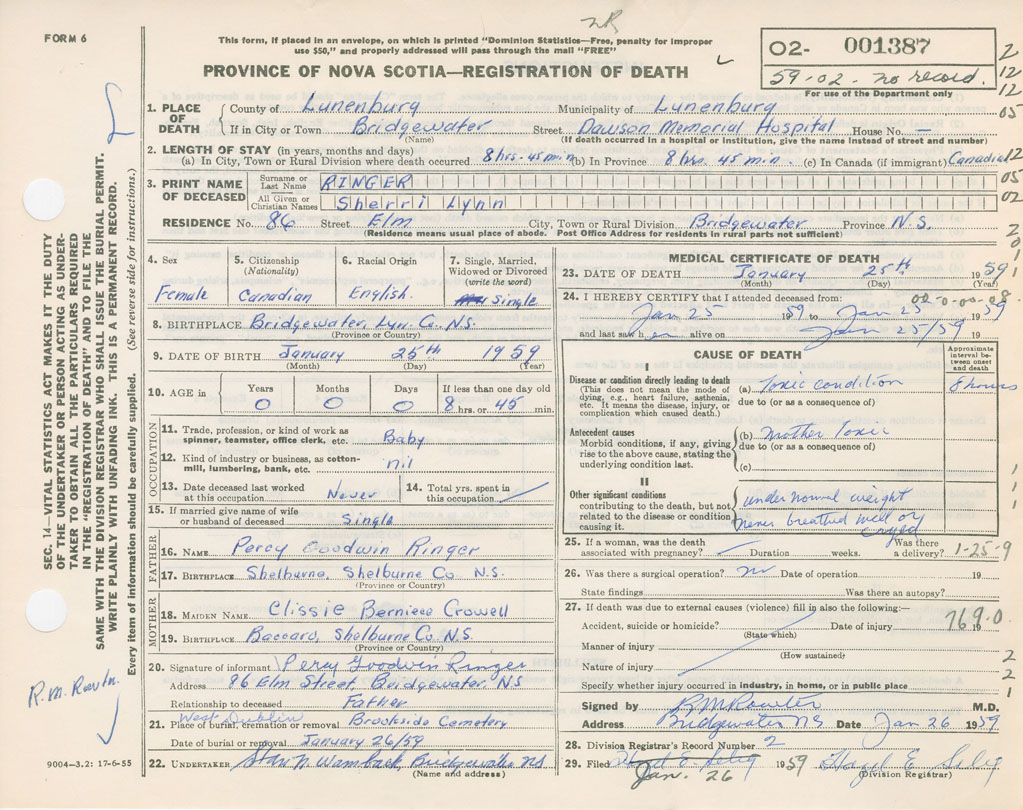 NR
FORM 6
This form, if placed in an envelope, on which is printed "Dominion Statistics—Free, penalty for improper
use $50," and properly addressed will pass through the mail "FREE"
PROVINCE OF NOVA SCOTIA—REGISTRATION OF DEATH
02- 001387
59-02- no record.
For use of the Department only
1. PLACE OF DEATH County of Lunenburg Municipality of Lunenburg
If in City or Town Bridgewater Street Dawson Memorial Hospital House No. —
(Name) (If death occurred in a hospital or institution, give the name instead of street and number)
2. LENGTH OF STAY (in years, months and days)
(a) In City, Town or Rural Division where death occurred 8 hrs. 45 min (b) In Province 8 hrs. 45 min. (c) In Canada (if immigrant) Canadian
3. PRINT NAME OF DECEASED Surname or Last Name RINGER
All Given or Christian Names Sherri Lynn
RESIDENCE No. 86 Street Elm City, Town or Rural Division Bridgewater Province N.S.
(Residence means usual place of abode. Post Office Address for residents in rural parts not sufficient)
4. Sex Female
5. Citizenship (Nationality) Canadian
6. Racial Origin English.
7. Single, Married, Widowed or Divorced (write the word) Single
8. BIRTHPLACE Bridgewater, Lun. Co. N.S.
(Province or Country)
9. DATE OF BIRTH January 25th 1959
(Month) (Day) (Year)
10. AGE in Years 0 Months 0 Days 0 If less than one day old 8 hrs. or 45 min.
OCCUPATION
11. Trade, profession, or kind of work as spinner, teamster, office clerk, etc. Baby
12. Kind of industry or business, as cotton-mill, lumbering, bank, etc. nil
13. Date deceased last worked at this occupation Never
14. Total yrs. spent in this occupation
15. If married give name of wife or husband of deceased Single
FATHER
16. NAME Percy Goodwin Ringer
17. BIRTHPLACE Shelburne, Shelburne Co N.S.
(Province or Country)
MOTHER
18. MAIDEN NAME Clissie Berniece Crowell
19. BIRTHPLACE Baccaro, Shelburne Co N.S.
(Province or Country)
20. Signature of informant Percy Goodwin Ringer
Address 86 Elm Street Bridgewater, NS
Relationship to deceased Father
21. Place of burial, cremation or removal West Dublin Brookside Cemetery
Date of burial or removal January 26/59
22. UNDERTAKER Wamback, Bridgewater NS
(Name and address)
MEDICAL CERTIFICATE OF DEATH
23. DATE OF DEATH January 25th 1959
(Month) (Day) (Year)
24. I HEREBY CERTIFY that I attended deceased from:
Jan 25 1959 to Jan 25 1959
and last saw her alive on Jan 25/59 19
CAUSE OF DEATH
Approximate interval between onset and death
I
Disease or condition directly leading to death (a) Toxic condition 8 hours
(This does not mean the mode of dying, e.g., heart failure, asthenia, etc. It means the disease, injury, or complication which caused death.) due to (or as a consequence of)
Antecedent causes (b) Mother Toxic
Morbid conditions, if any, giving rise to the above cause, stating the underlying condition last. due to (or as a consequence of)
(c)
II
Other significant conditions contributing to the death, but not related to the disease or condition causing it.
under normal weight
never breathed well or cryed
25. If a woman, was the death associated with pregnancy? Duration weeks. Was there a delivery? 1-25-9
26. Was there a surgical operation? no Date of operation 19
State findings Was there an autopsy?
27. If death was due to external causes (violence) fill in also the following:—
Accident, suicide or homicide? Date of injury 19
769.0
(State which)
Manner of injury
(How sustained)
Nature of injury
Specify whether injury occurred in industry, in home, or in public place
Signed by R M Rowter M.D.
Address Bridgewater NS Date Jan 26 1959
28. Division Registrar's Record Number 2
29. Filed Jan. 26 1959 Hazel E Selig
(Division Registrar)
SEC. 14—VITAL STATISTICS ACT MAKES IT THE DUTY
OF THE UNDERTAKER OR PERSON ACTING AS UNDER-
TAKER TO OBTAIN ALL THE PARTICULARS REQUIRED
IN THE "REGISTRATION OF DEATH" AND TO FILE THE
SAME WITH THE DIVISION REGISTRAR WHO SHALL ISSUE THE BURIAL PERMIT.
WRITE PLAINLY WITH UNFADING INK. THIS IS A PERMANENT RECORD.
Every item of information should be carefully supplied. (See reverse side for instructions.)
9004-3.2: 17-6-55